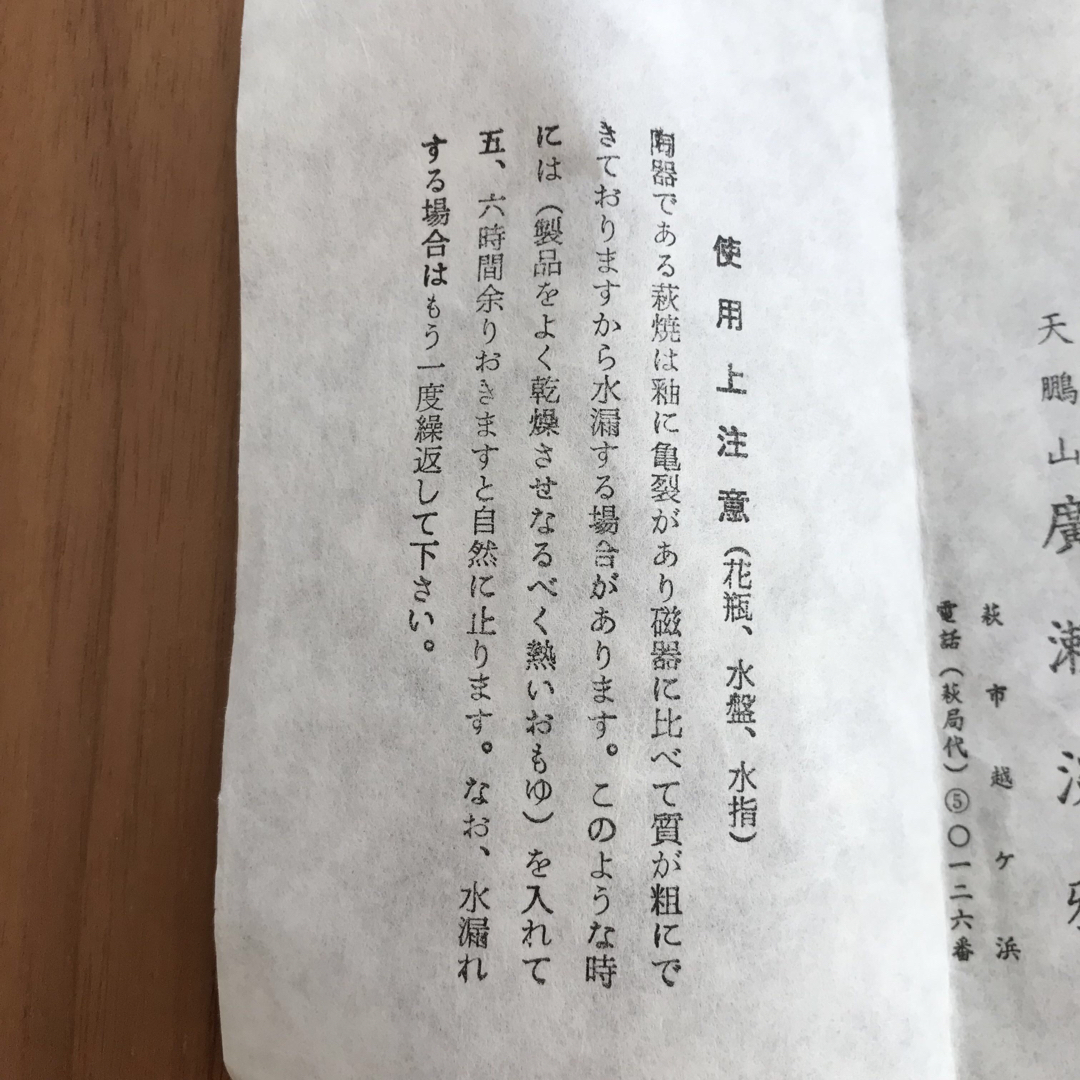 天鵬山廣瀬淡
萩市越ケ浜
電話(萩局代)⑤〇一二六番
使用上注意(花瓶、水盤、水指)
陶器である萩焼は釉に亀裂があり磁器に比べて質が粗にで
きておりますから水漏する場合があります。このような時
には(製品をよく乾燥させなるべく熱いおもゆ)を入れて
五、六時間余りおきますと自然に止ります。なお、水漏れ
する場合はもう一度繰返して下さい。